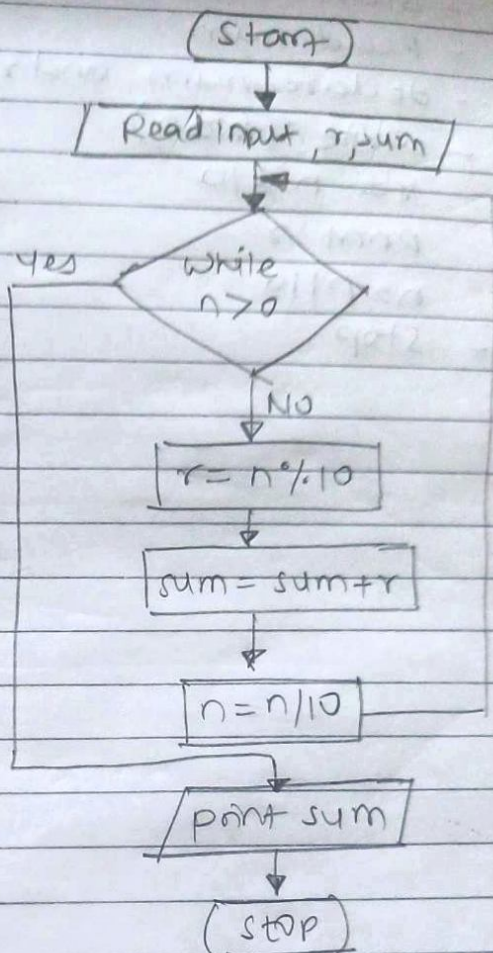 Start
Read input, r, sum
yes
while
n>0
NO
r = n%10
sum = sum+r
n = n/10
print sum
stop